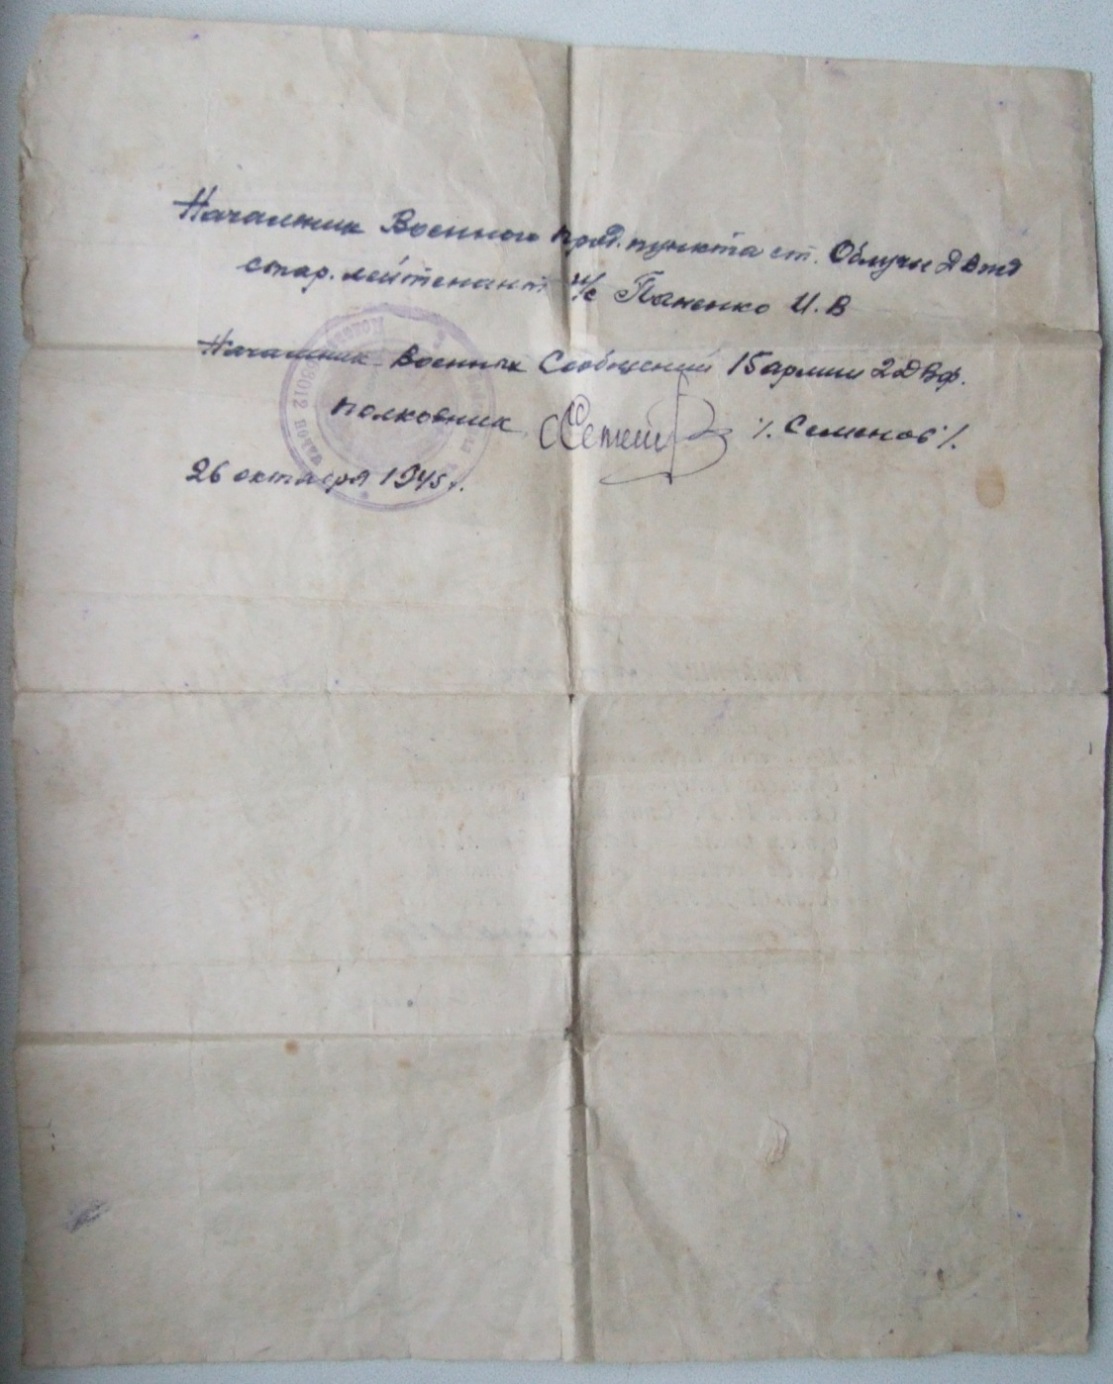 Начальник Военного прод. пункта ст. Облучье
стар. лейтенант и/с Паненко И.В
Начальник Военных Сообщений 15 армии 2ДВф.
полковник /. Семенов /.
26 октября 1945 г.